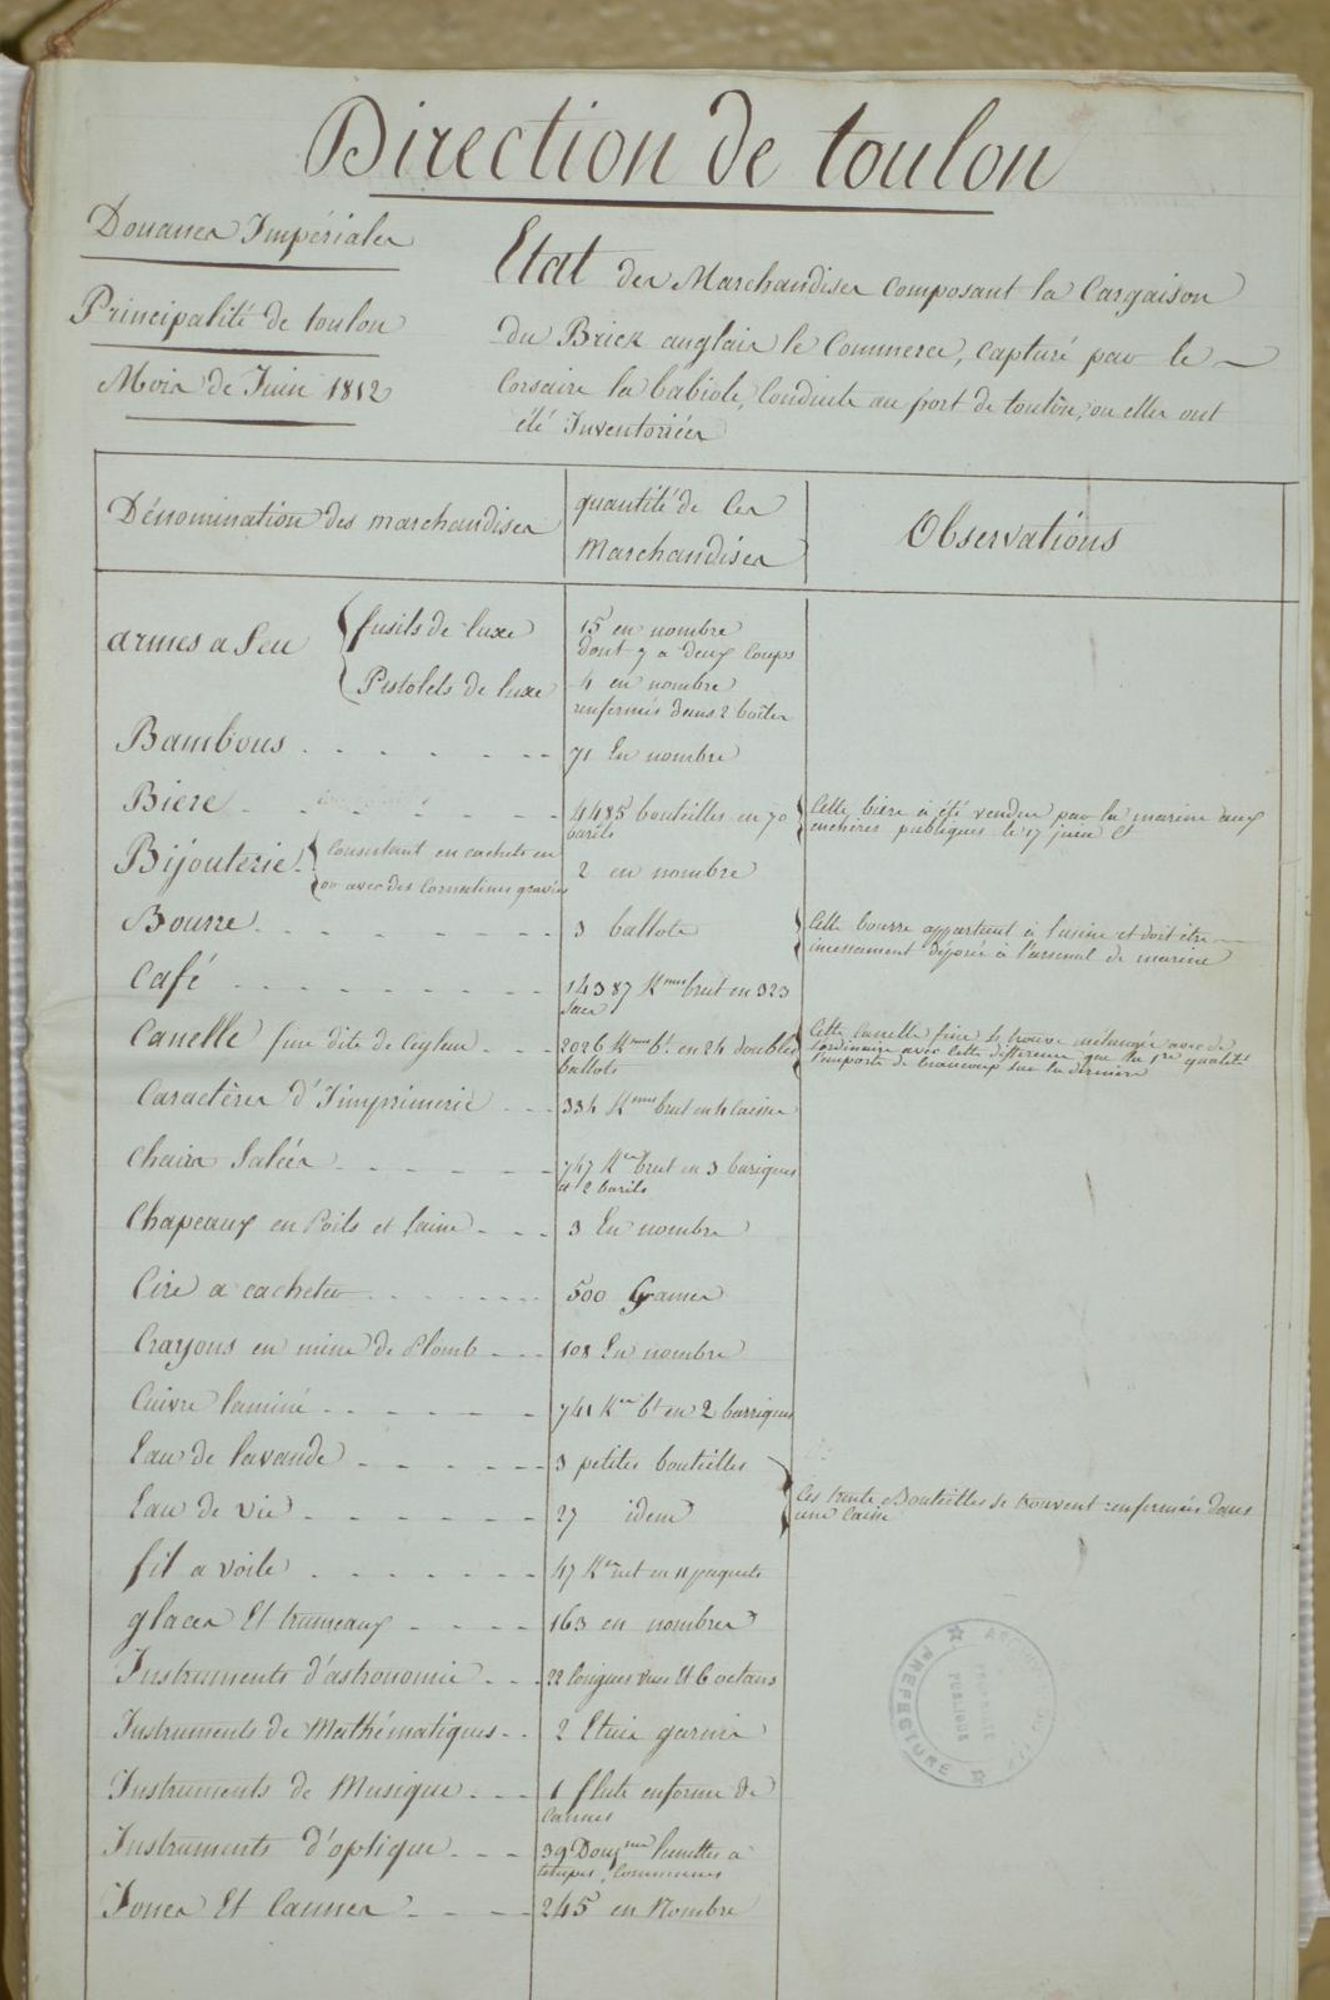 Direction de toulon
Douanes Impériales
Principalité de toulon
Mois de Juin 1812
Etat des Marchandises Composant la Cargaison
du Brick anglais le Commerce, Capturé par le
Corsaire la babiole, Conduite au port de toulon, ou elles ont
été Inventoriées
Dénomination des marchandises
quantité de Ces
Marchandises
Observations
armes a feu
fusils de luxe
15 en nombre
dont 7 a deux Coups
Pistolets de luxe
4 en nombre
renfermés dans 2 boëtes
Bambous
71 En nombre
Biere
4485 bouteilles en 70
barils
Cette bière a été vendue par la marine aux
enchères publiques le 17 juin Ct
Bijouterie
Consistant en cachets en
or avec des Cornalines gravées
2 en nombre
Bourre
3 ballots
Cette bourre appartient à l'usine et doit être
incessament déposée à l'arsenal de marine
Café
14387 Kmes brut en 323
Sacs
Canelle fine dite de Ceylan
2026 Kmes bt en 24 doubles
ballots
Cette Canelle fine se trouve mélangée avec de
l'ordinaire avec cette différence que la 1re qualité
l'emporte de beaucoup sur la dernière
Caractères d'Imprimerie
334 Kmes brut en 4 Caisses
Chairs Salées
747 Kes brut en 3 bariques
et 2 barils
Chapeaux en Poils et laine
3 En nombre
Cire a cacheter
500 Grames
Crayons en mine de Plomb
108 En nombre
Cuivre laminé
741 Kes bt en 2 barriques
Eau de lavande
3 petites bouteilles
Eau de vie
27 idem
Ces trente Bouteilles se trouvent renfermées dans
une Caisse
fil a voile
47 Kes net en 11 paquets
glaces Et trumeaux
163 en nombres
Instruments d'astronomie
22 longues vues Et 6 octans
Instruments de Mathématiques
2 Etuis garnis
Instruments de Musique
1 flute enforme de
Cannes
Instruments d'optique
39 Douznes lunettes a
Communes
Joncs Et Cannes
245 en Nombre
PREFECTURE
PUBLIQUE